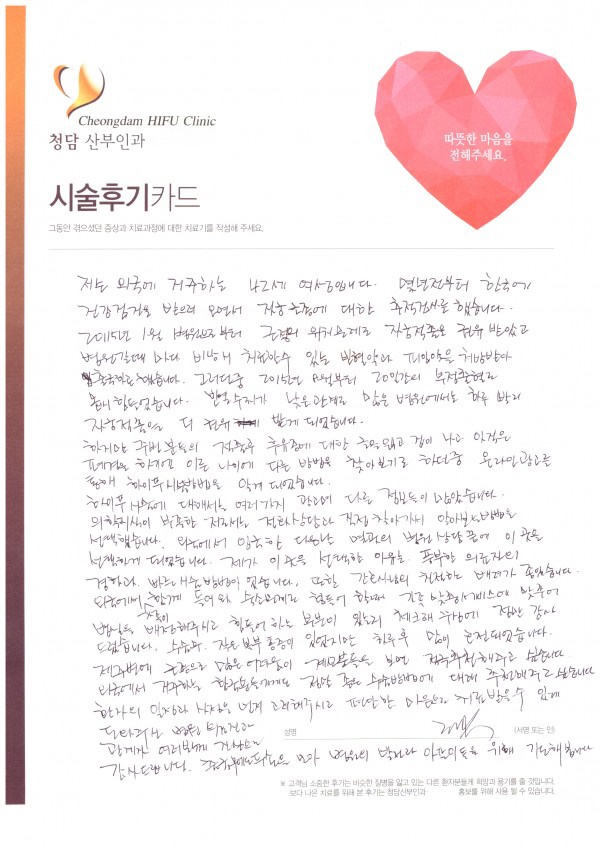 Cheongdam HIFU Clinic
청담 산부인과
따뜻한 마음을
전해주세요.
시술후기카드
그동안 겪으셨던 증상과 치료과정에 대한 치료기를 작성해 주세요.
저는 외국에 거주하는 42세 여성입니다. 몇년전부터 한국에
건강검진을 받으러 오면서 자궁근종에 대한 추적검사를 했습니다.
2015년 1월 병원으로부터 근종의 위치문제로 자궁적출을 권유 받았고
병원갈때 마다 비방해 처리할수 있는 빈혈약과 피임약을 처방받아
했습니다. 그러던중 2015년 부터 20일간의 부정출혈로
몹시 힘들었습니다. 빈혈수치가 낮은관계로 많은 병원에서도 하루 빨리
자궁적출을 더 권유 받게 되었습니다.
하지만 주변분들의 적출후 후유증에 대한 겁이 나고
폐경을 하기엔 이른 나이에 다른 방법을 찾아보기로 하던중 온라인광고를
통해 하이푸시술방법을 알게 되었습니다.
하이푸 시술에 대해서는 여러가지 관련 다른 정보들이 많았습니다.
의학지식이 부족한 저로서는 전화상담과 직접 찾아가서 알아보는 방법을
선택했습니다. 외국에서 입국한 다음날 병원 상담 끝에 이 곳을
선택하게 되었습니다. 제가 이 곳을 선택한 이유는 풍부한 의료진의
경험과 빠른 방법이 있습니다. 또한 간호사님의 친절한 배려가 좋았습니다.
외국에서 들어와 힘들어 할때 직접 맞춤서비스에 맞추어
병실을 배정해주시고 힘들어 하는 부분이 있는지 체크해 주심에 정말 감사
드립니다. 시술후 작은 복부 통증이 있었지만 하루후 많이 호전되었습니다.
제주변에 근종으로 많은 어려움이 계신분들을 보면 적극추천해주고 싶습니다
외국에서 거주하는 한국분들에게도 정말 좋은 시술방법에 대해 추천해주고 싶습니다
환자의 일정과 사정을 먼저 고려해주시고 편안한 마음으로 치료받을수 있게
도와주신 병원 의료진과
관계자 여러분께 진심으로
성명 (서명 또는 인)
감사드립니다. 병원의 발전과 위해 기도해봅니다
※ 고객님 소중한 후기는 비슷한 질병을 앓고 있는 다른 환자분들께 희망과 용기를 줄 것입니다.
보다 나은 치료를 위해 본 후기는 청담산부인과 홍보를 위해 사용 될 수 있습니다.